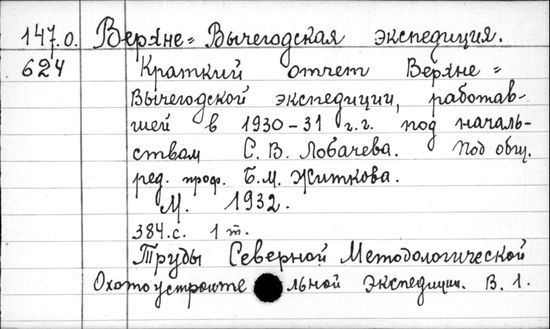 147.0. Верхне=Вычегодская экспедиция.
624 Краткий отчет Верхне=
Вычегодской экспедиции, работав-
шей в 1930-31 г.г. под началь-
ствам С. В. Лобачева. Под общ.
ред. проф. Б.М. Житкова.
М. 1932.
384.с. 1 т.
Труды Северной Методологической
Охотоустроительной Экспедиции. В. 1.